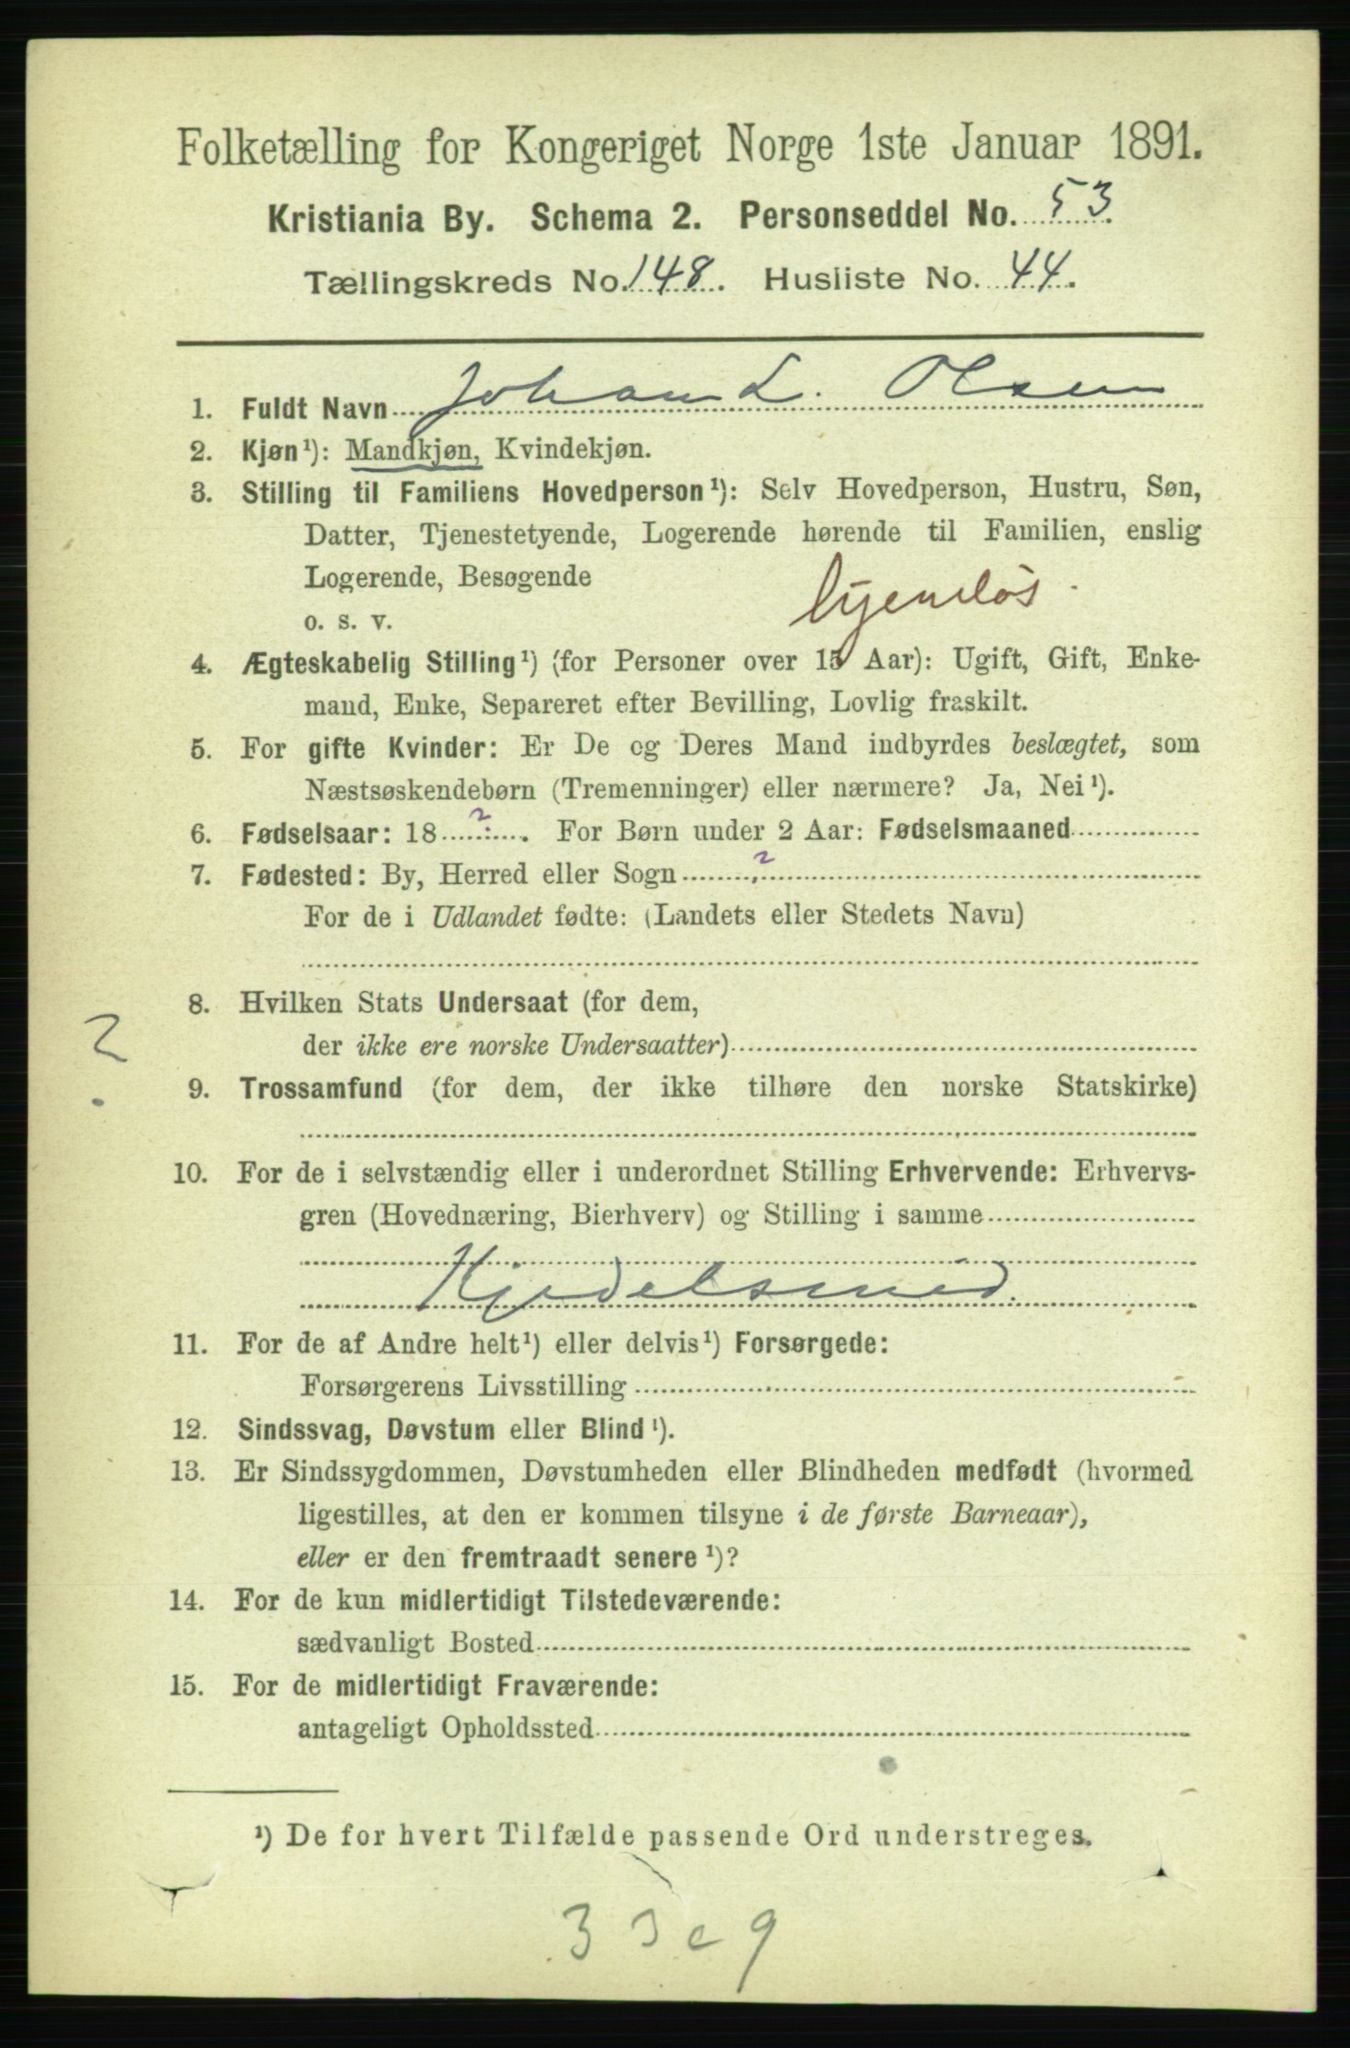 Folketælling for Kongeriget Norge 1ste Januar 1891.
Kristiania By. Schema 2. Personseddel No. 53
Tællingskreds No. 148. Husliste No. 44.
1. Fuldt Navn Johan L. Olsen
2. Kjøn¹): Mandkjøn, Kvindekjøn.
3. Stilling til Familiens Hovedperson¹): Selv Hovedperson, Hustru, Søn,
Datter, Tjenestetyende, Logerende hørende til Familien, enslig
Logerende, Besøgende
o. s. v. hjemløs
4. Ægteskabelig Stilling¹) (for Personer over 15 Aar): Ugift, Gift, Enke-
mand, Enke, Separeret efter Bevilling, Lovlig fraskilt.
5. For gifte Kvinder: Er De og Deres Mand indbyrdes beslægtet, som
Næstsøskendebørn (Tremenninger) eller nærmere? Ja, Nei¹).
6. Fødselsaar: 18 ? . For Børn under 2 Aar: Fødselsmaaned
7. Fødested: By, Herred eller Sogn ?
For de i Udlandet fødte: (Landets eller Stedets Navn)
8. Hvilken Stats Undersaat (for dem,
?
der ikke ere norske Undersaatter)
9. Trossamfund (for dem, der ikke tilhøre den norske Statskirke)
10. For de i selvstændig eller i underordnet Stilling Erhvervende: Erhvervs-
gren (Hovednæring, Bierhverv) og Stilling i samme
Kjedelsmed.
11. For de af Andre helt¹) eller delvis¹) Forsørgede:
Forsørgerens Livsstilling
12. Sindssvag, Døvstum eller Blind¹).
13. Er Sindssygdommen, Døvstumheden eller Blindheden medfødt (hvormed
ligestilles, at den er kommen tilsyne i de første Barneaar),
eller er den fremtraadt senere¹)?
14. For de kun midlertidigt Tilstedeværende:
sædvanligt Bosted
15. For de midlertidigt Fraværende:
antageligt Opholdssted
¹) De for hvert Tilfælde passende Ord understreges.